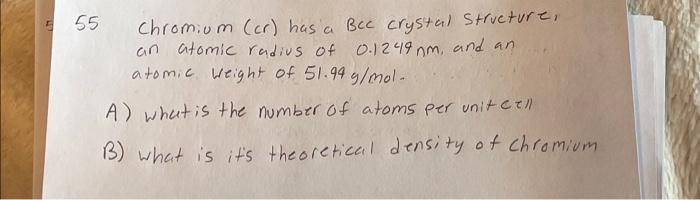 55 Chromium (cr) has a Bcc crystal structure,
an atomic radius of 0.1249 nm, and an
atomic weight of 51.99 g/mol.
A) what is the number of atoms per unit cell
B) what is it's theoretical density of chromium